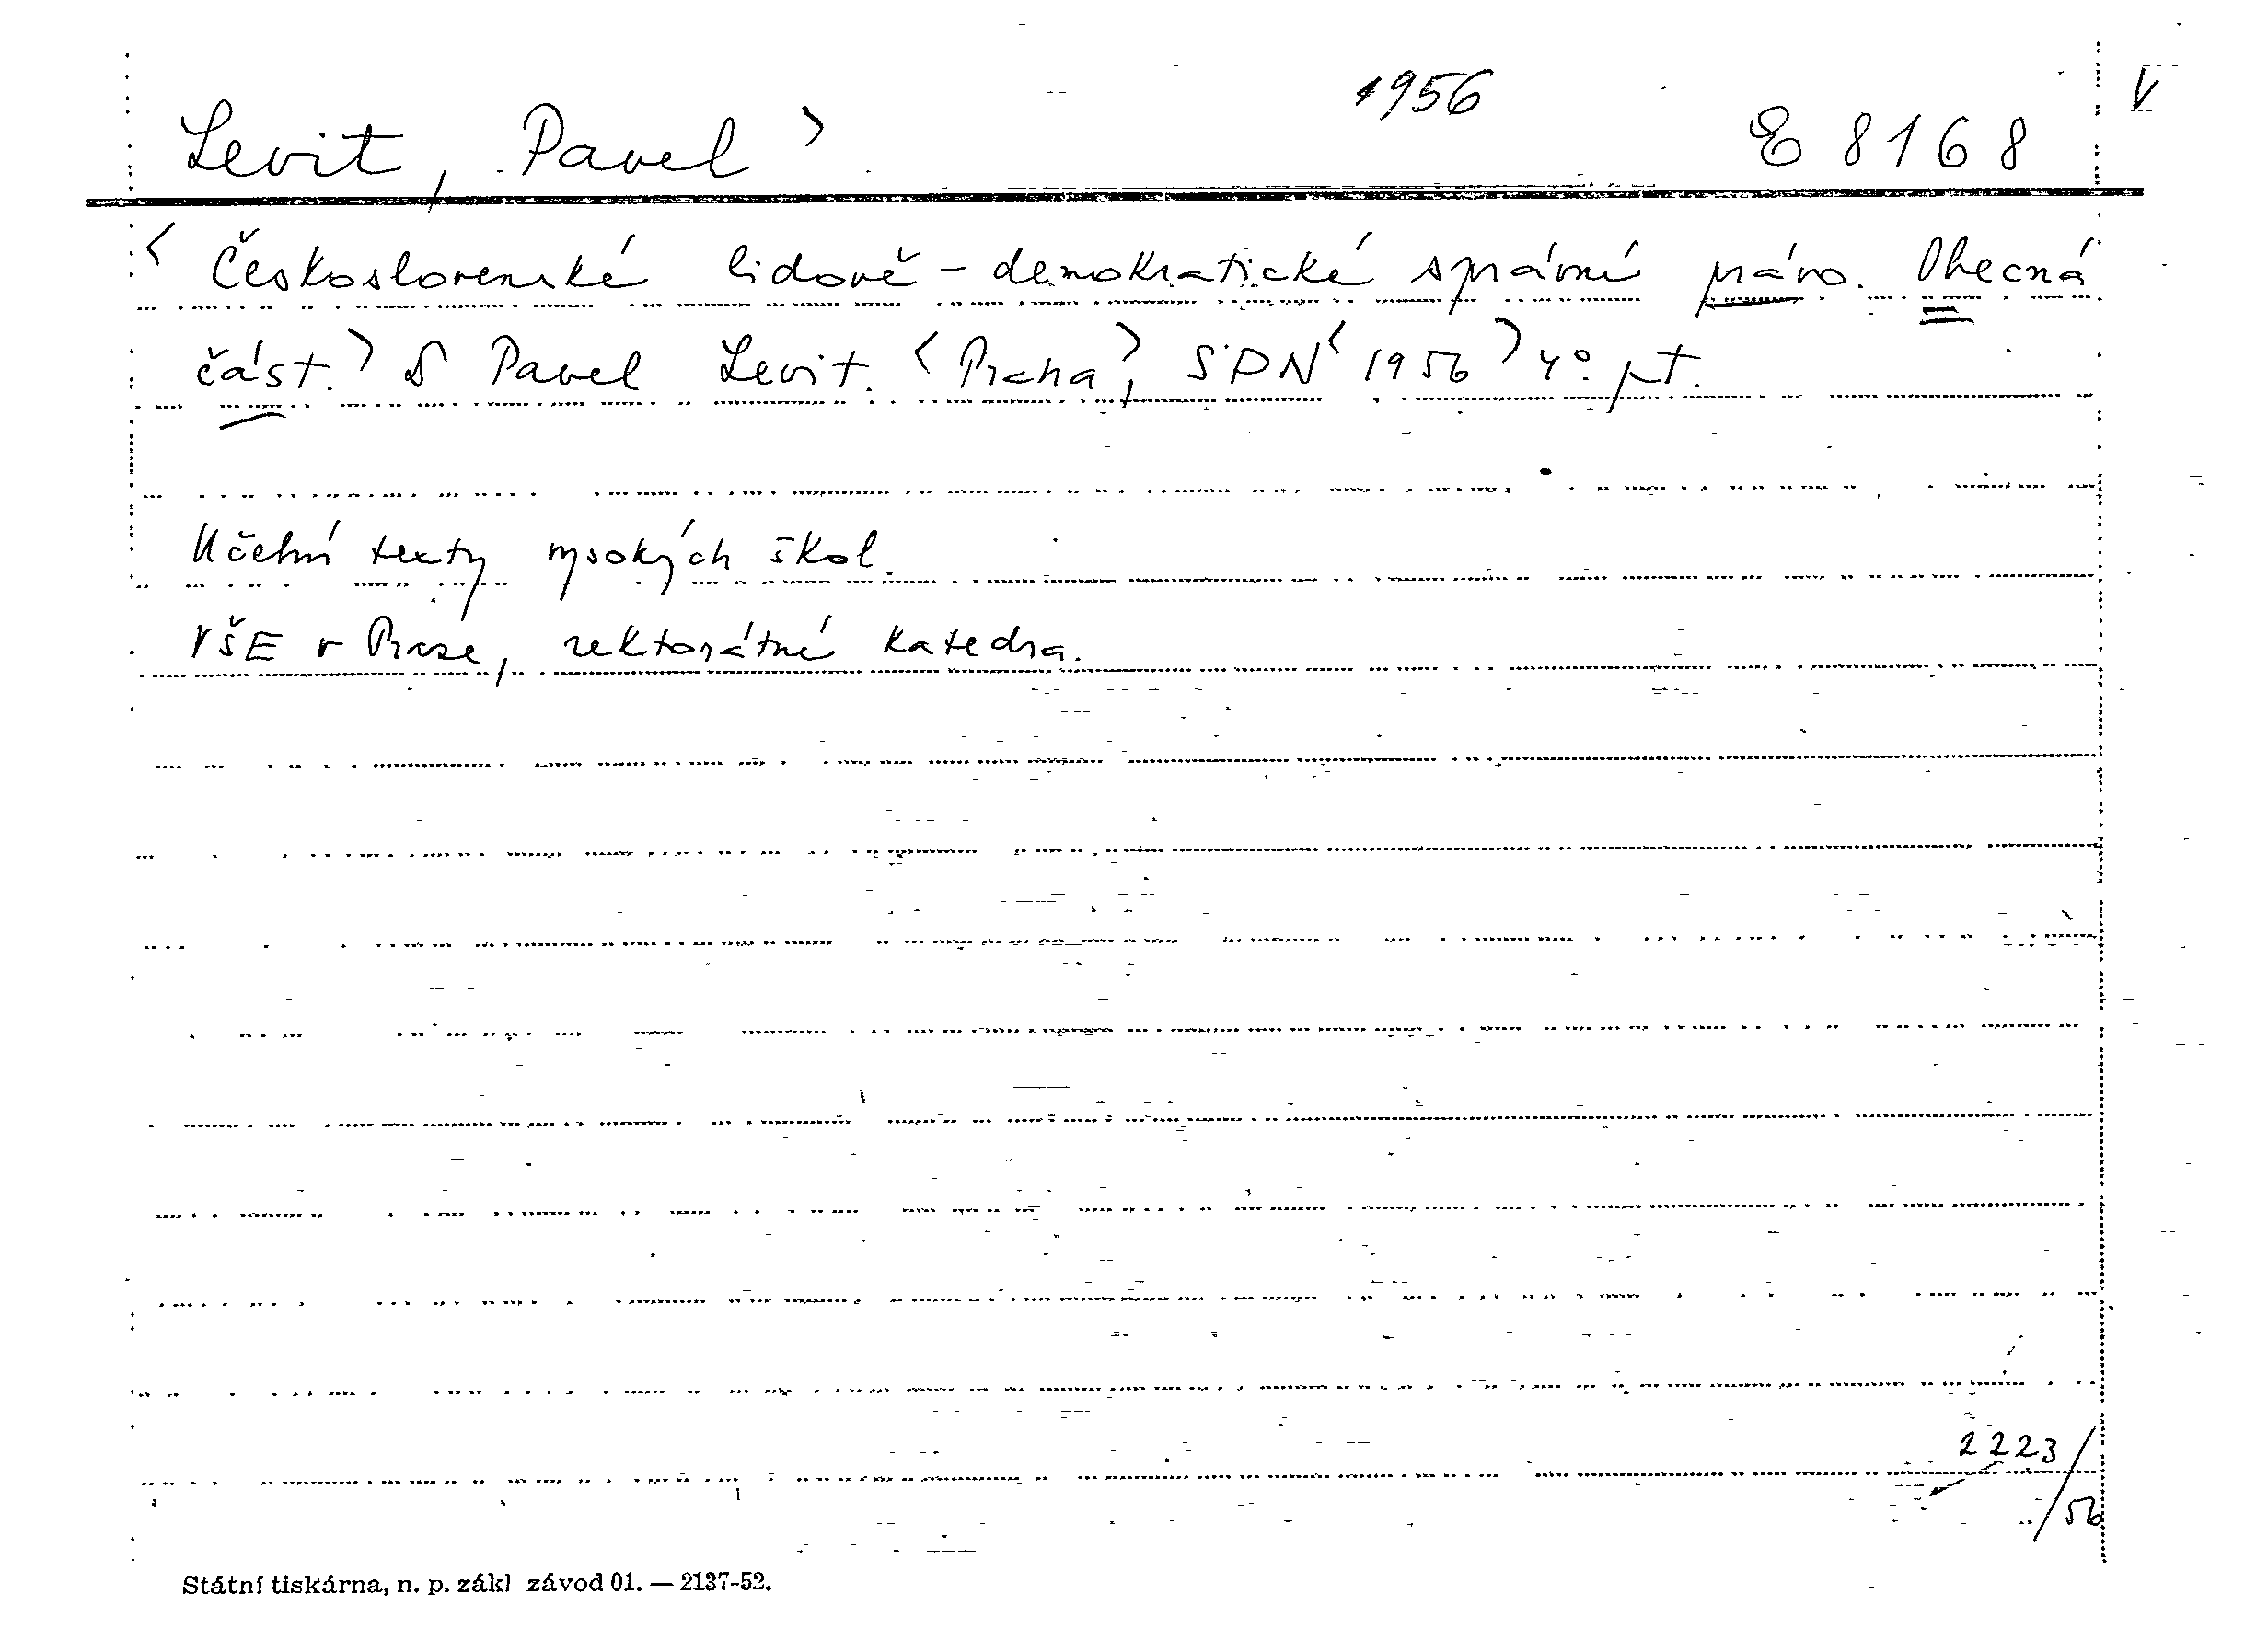 1956
V
Levit, Pavel >
E 8168
< Československé lidově-demokratické správní právo. Obecná
část. > Pavel Levit. < Praha >, SPN < 1956 > 4° pt.
Učební texty vysokých škol.
VŠE v Praze, rektorátné katedra.
2223/56
Státní tiskárna, n. p. zákl závod 01. — 2137-52.